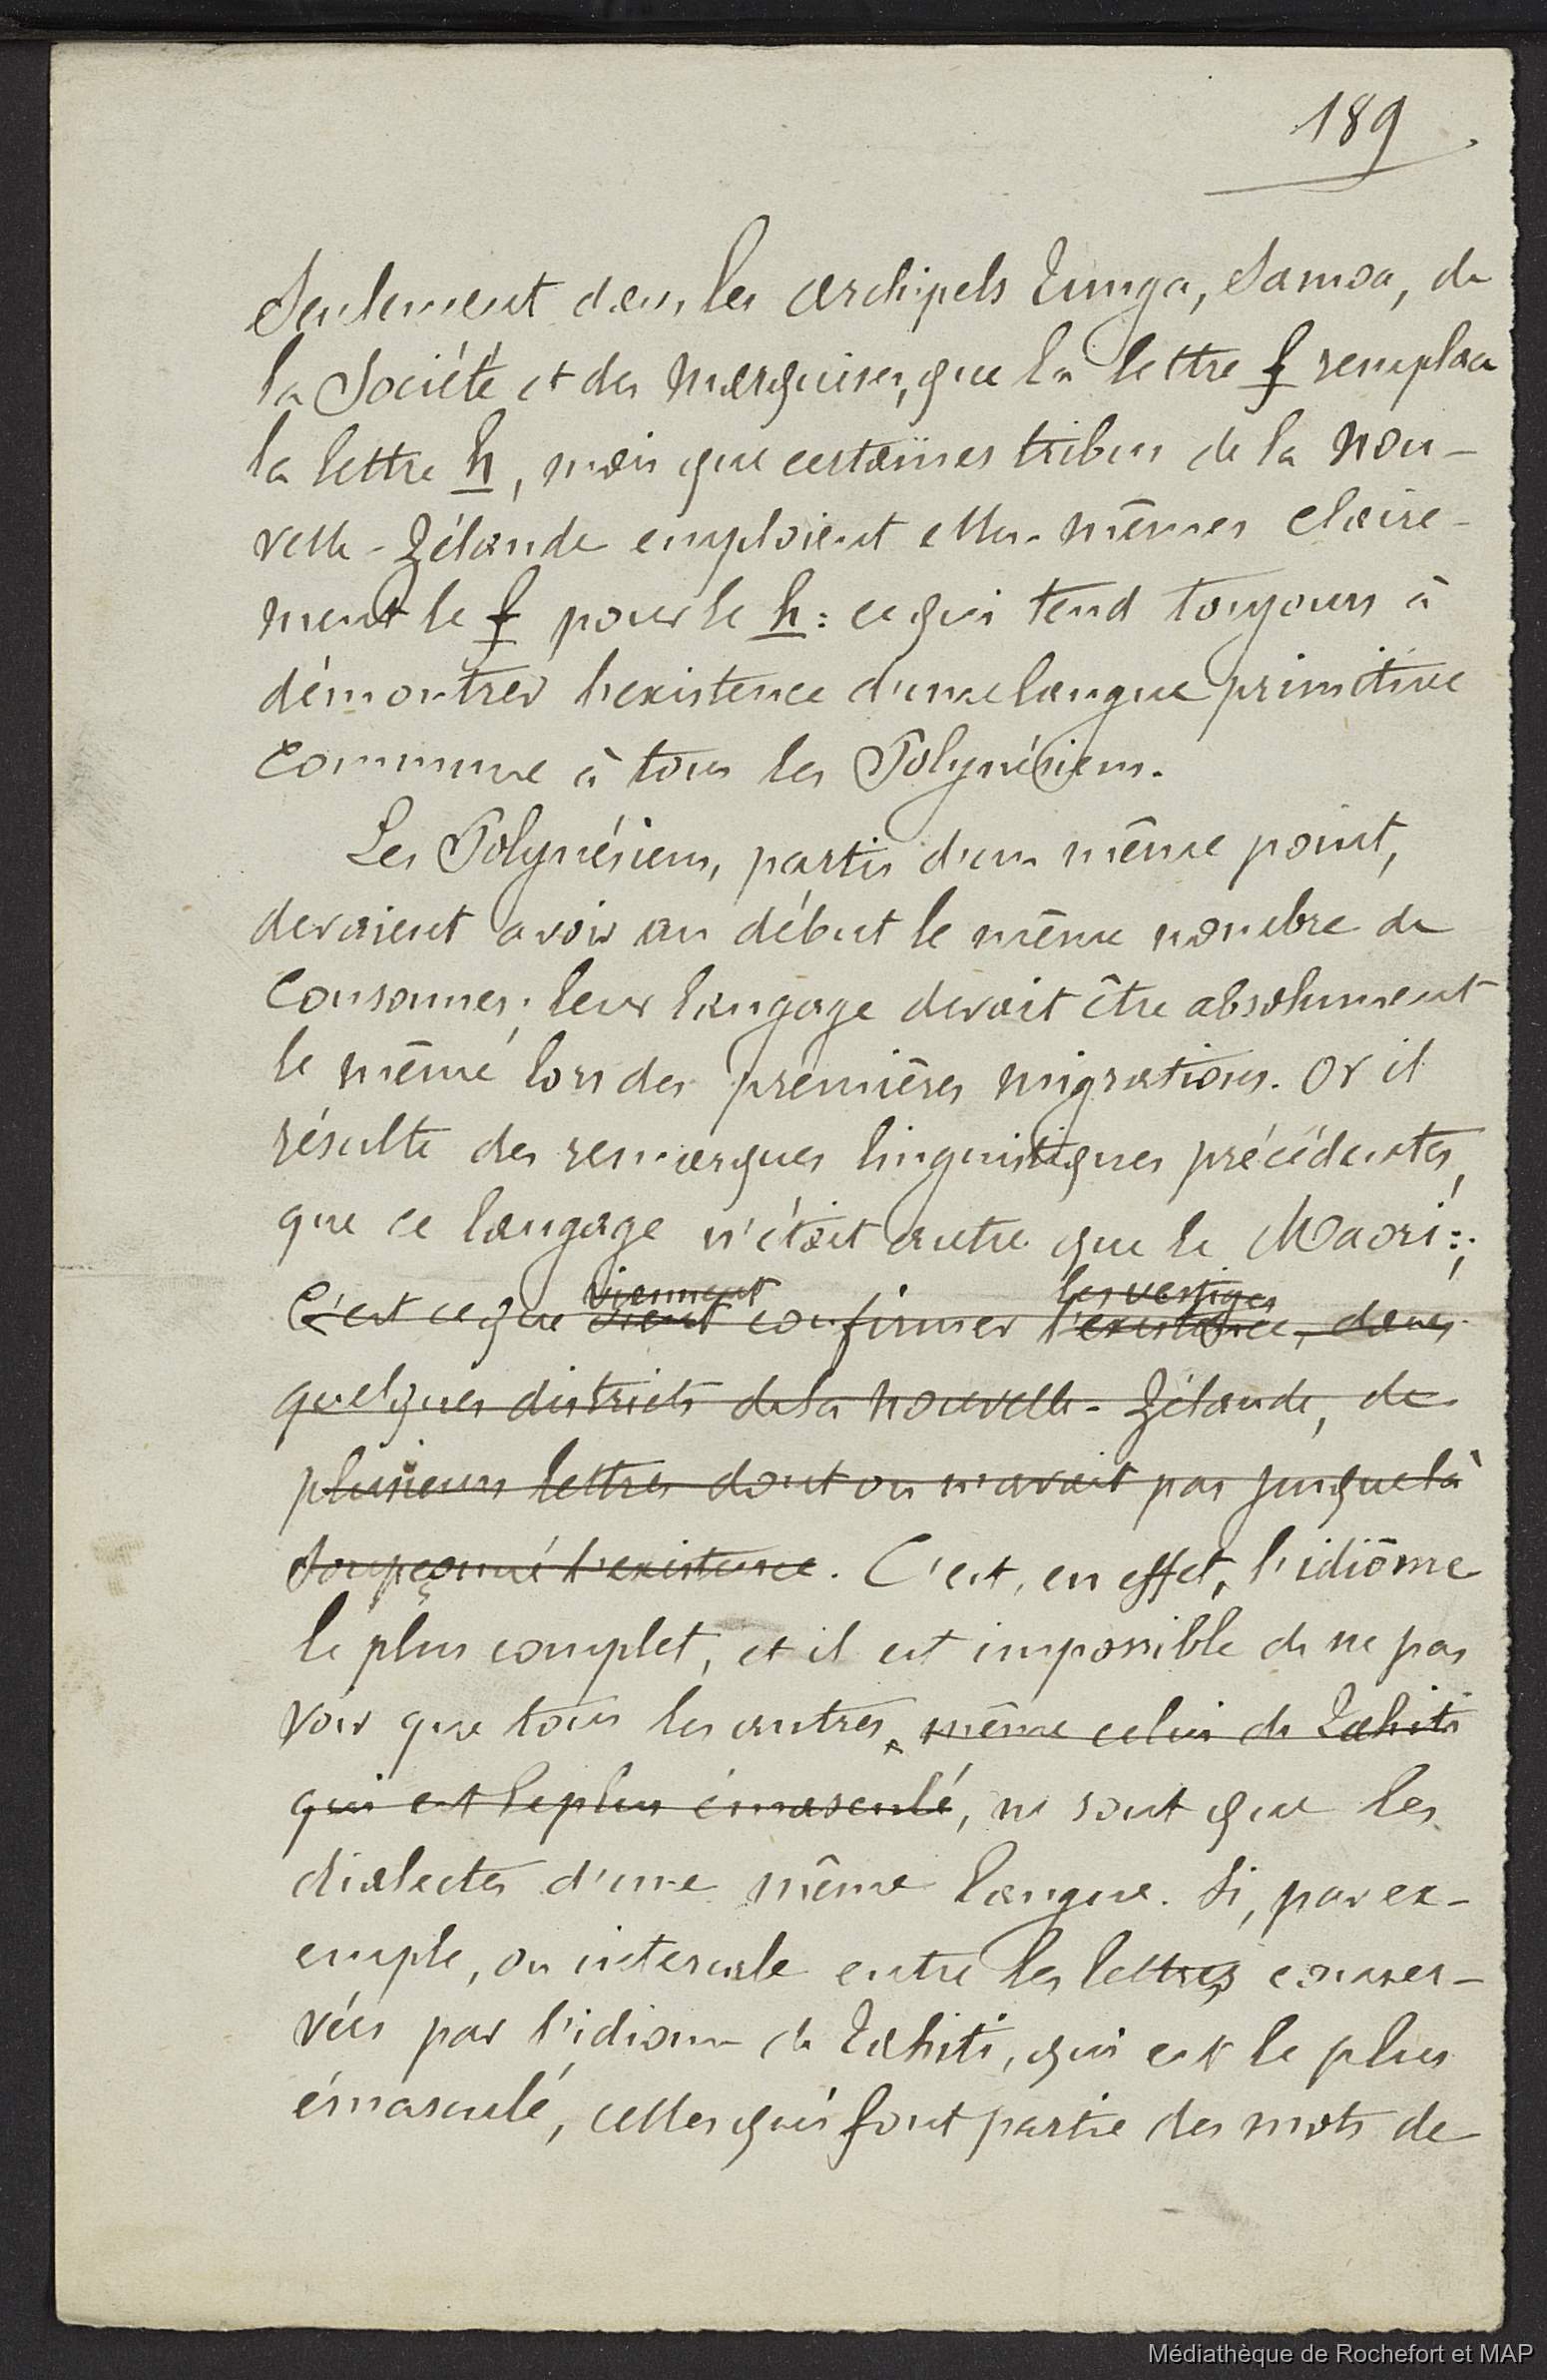 189
Seulement dans les archipels Tunga, Samoa, de
la Société et des Marquises, que la lettre f remplace
la lettre h, mais que certaines tribus de la Nou-
velle-Zélande emploient elles-mêmes claire-
ment le f pour le h : ce qui tend toujours à
démontrer l'existence d'une langue primitive
commune à tous les Polynésiens.
Les Polynésiens, partis d'un même point,
devaient avoir au début le même nombre de
consonnes ; leur langage devait être absolument
le même lors des premières migrations. Or il
résulte des remarques linguistiques précédentes,
que ce langage n'était autre que le Maori :;
viennent les vestiges
C'est ce que vient confirmer l'existence, dans
quelques districts de la Nouvelle-Zélande, de
plusieurs lettres dont on n'avait pas jusque là
soupçonné l'existence. C'est, en effet, l'idiôme
le plus complet, et il est impossible de ne pas
voir que tous les autres, même celui de Tahiti
qui est le plus émasculé, ne sont que les
dialectes d'une même langue. Si, par ex-
emple, on intercale entre les lettres conser-
vées par l'idiome de Tahiti, qui est le plus
émasculé, celles qui font partie des mots de
Médiathèque de Rochefort et MAP